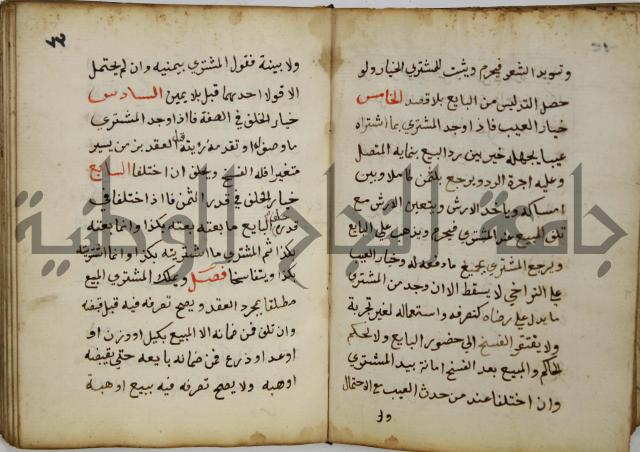 وتسويد الشعر فيحرم ويثبت للمشتري الخيار ولو
حصل التدليس من البايع بلا قصد الخامس
خيار العيب فاذا وجد المشتري بما اشتراه
عيبا بجهله خير بين رد المبيع بنمايه المتصل
وعليه اجرة الرد ويرجع بالثمن كاملا وبين
امساكه وياخذ الارش ويتعين الارش مع
تلف المبيع عند المشتري فيحرم ويذهب علي البايع
ويرجع المشتري بجميع ما دفعه له وخيار العيب
علي التراخي لا يسقط الا ان وجد من المشتري
ما يدل علي رضاه كتصرفه واستعماله لغير تجربة
ولا يفتقر الفسخ الي حضور البايع ولا لحكم
الحاكم والمبيع بعد الفسخ امانة بيد المشتري
وان اختلفا عند من حدث العيب مع الاحتمال
ولا
ولا بينة فقول المشتري بيمنيه وان لم يحتمل
الا قول احدهما قبل بلا يمين السادس
خيار الخلف في الصفة فاذا وجد المشتري
ما وصف او تقدمت رؤيته قبل العقد بزمن يسير
متغيرا فله الفسخ ويحلف ان اختلفا السابع
خيار الخلف في قدر الثمن فاذا اختلفا في
قدره حلف البايع ما بعته بكذا وانما بعته
بكذا ثم المشتري ما اشتريته بكذا وانما اشتريته
بكذا ويتفاسخا فصل ويملك المشتري المبيع
مطلقا بمجرد العقد ويصح تصرفه فيه قبل قبضه
وان تلف فمن ضمانه الا المبيع بكيل او وزن او
او عد او ذرع فمن ضمانه بايعه حتي يقبضه
اوهبه ولا يصح تصرفه فيه ببيع او هبة
جامعة النجاح الوطنية